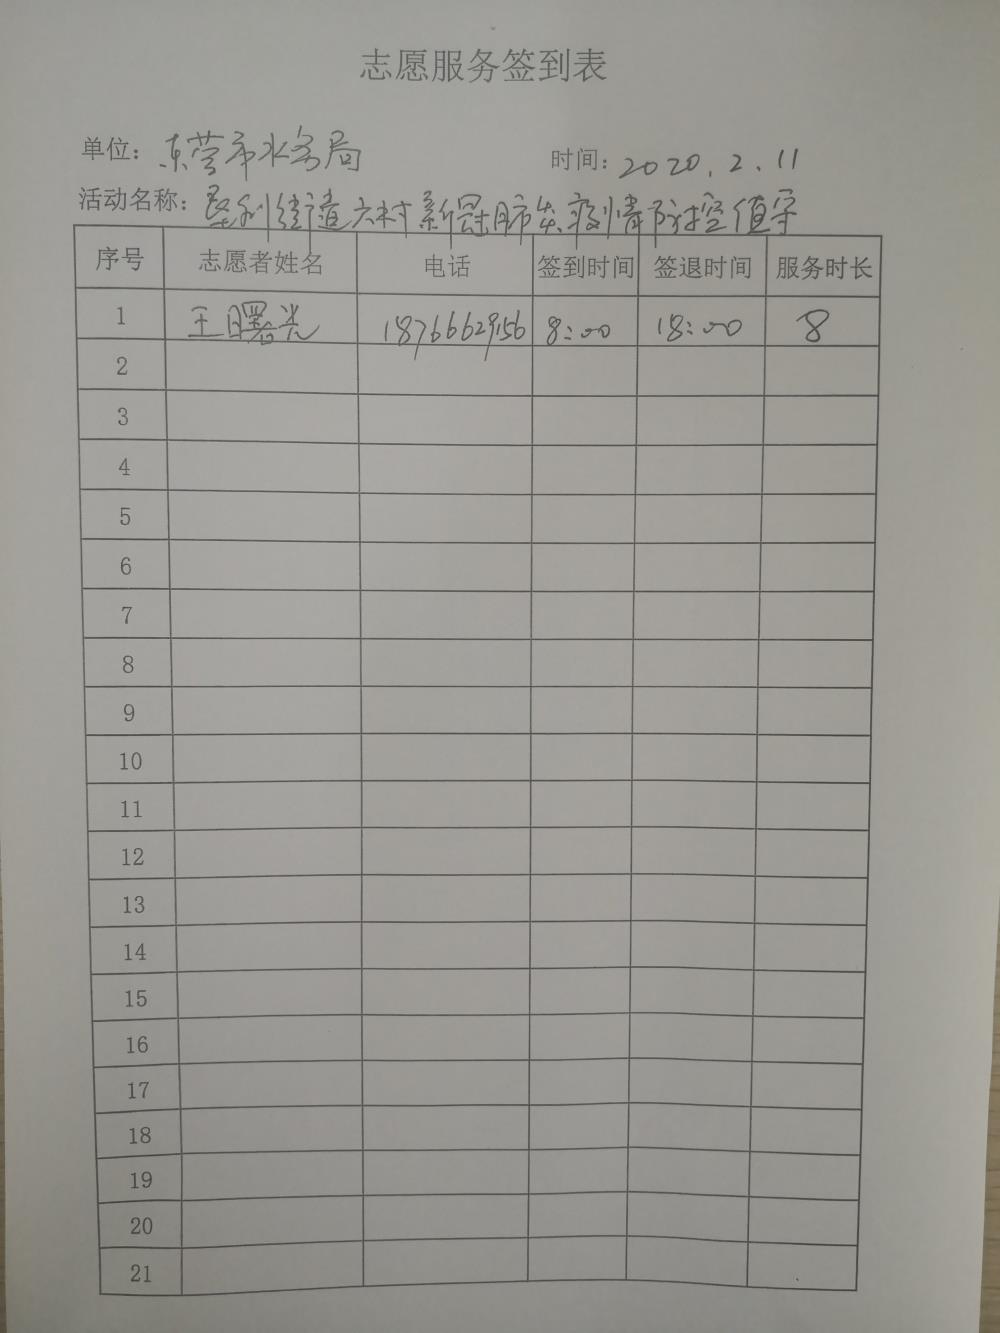 志愿服务签到表
单位：东营市水务局 时间：2020.2.11
活动名称：垦利街道六村新冠肺炎疫情防控值守
序号 志愿者姓名 电话 签到时间 签退时间 服务时长
1 王曙光 18766629156 8:00 18:00 8
2
3
4
5
6
7
8
9
10
11
12
13
14
15
16
17
18
19
20
21